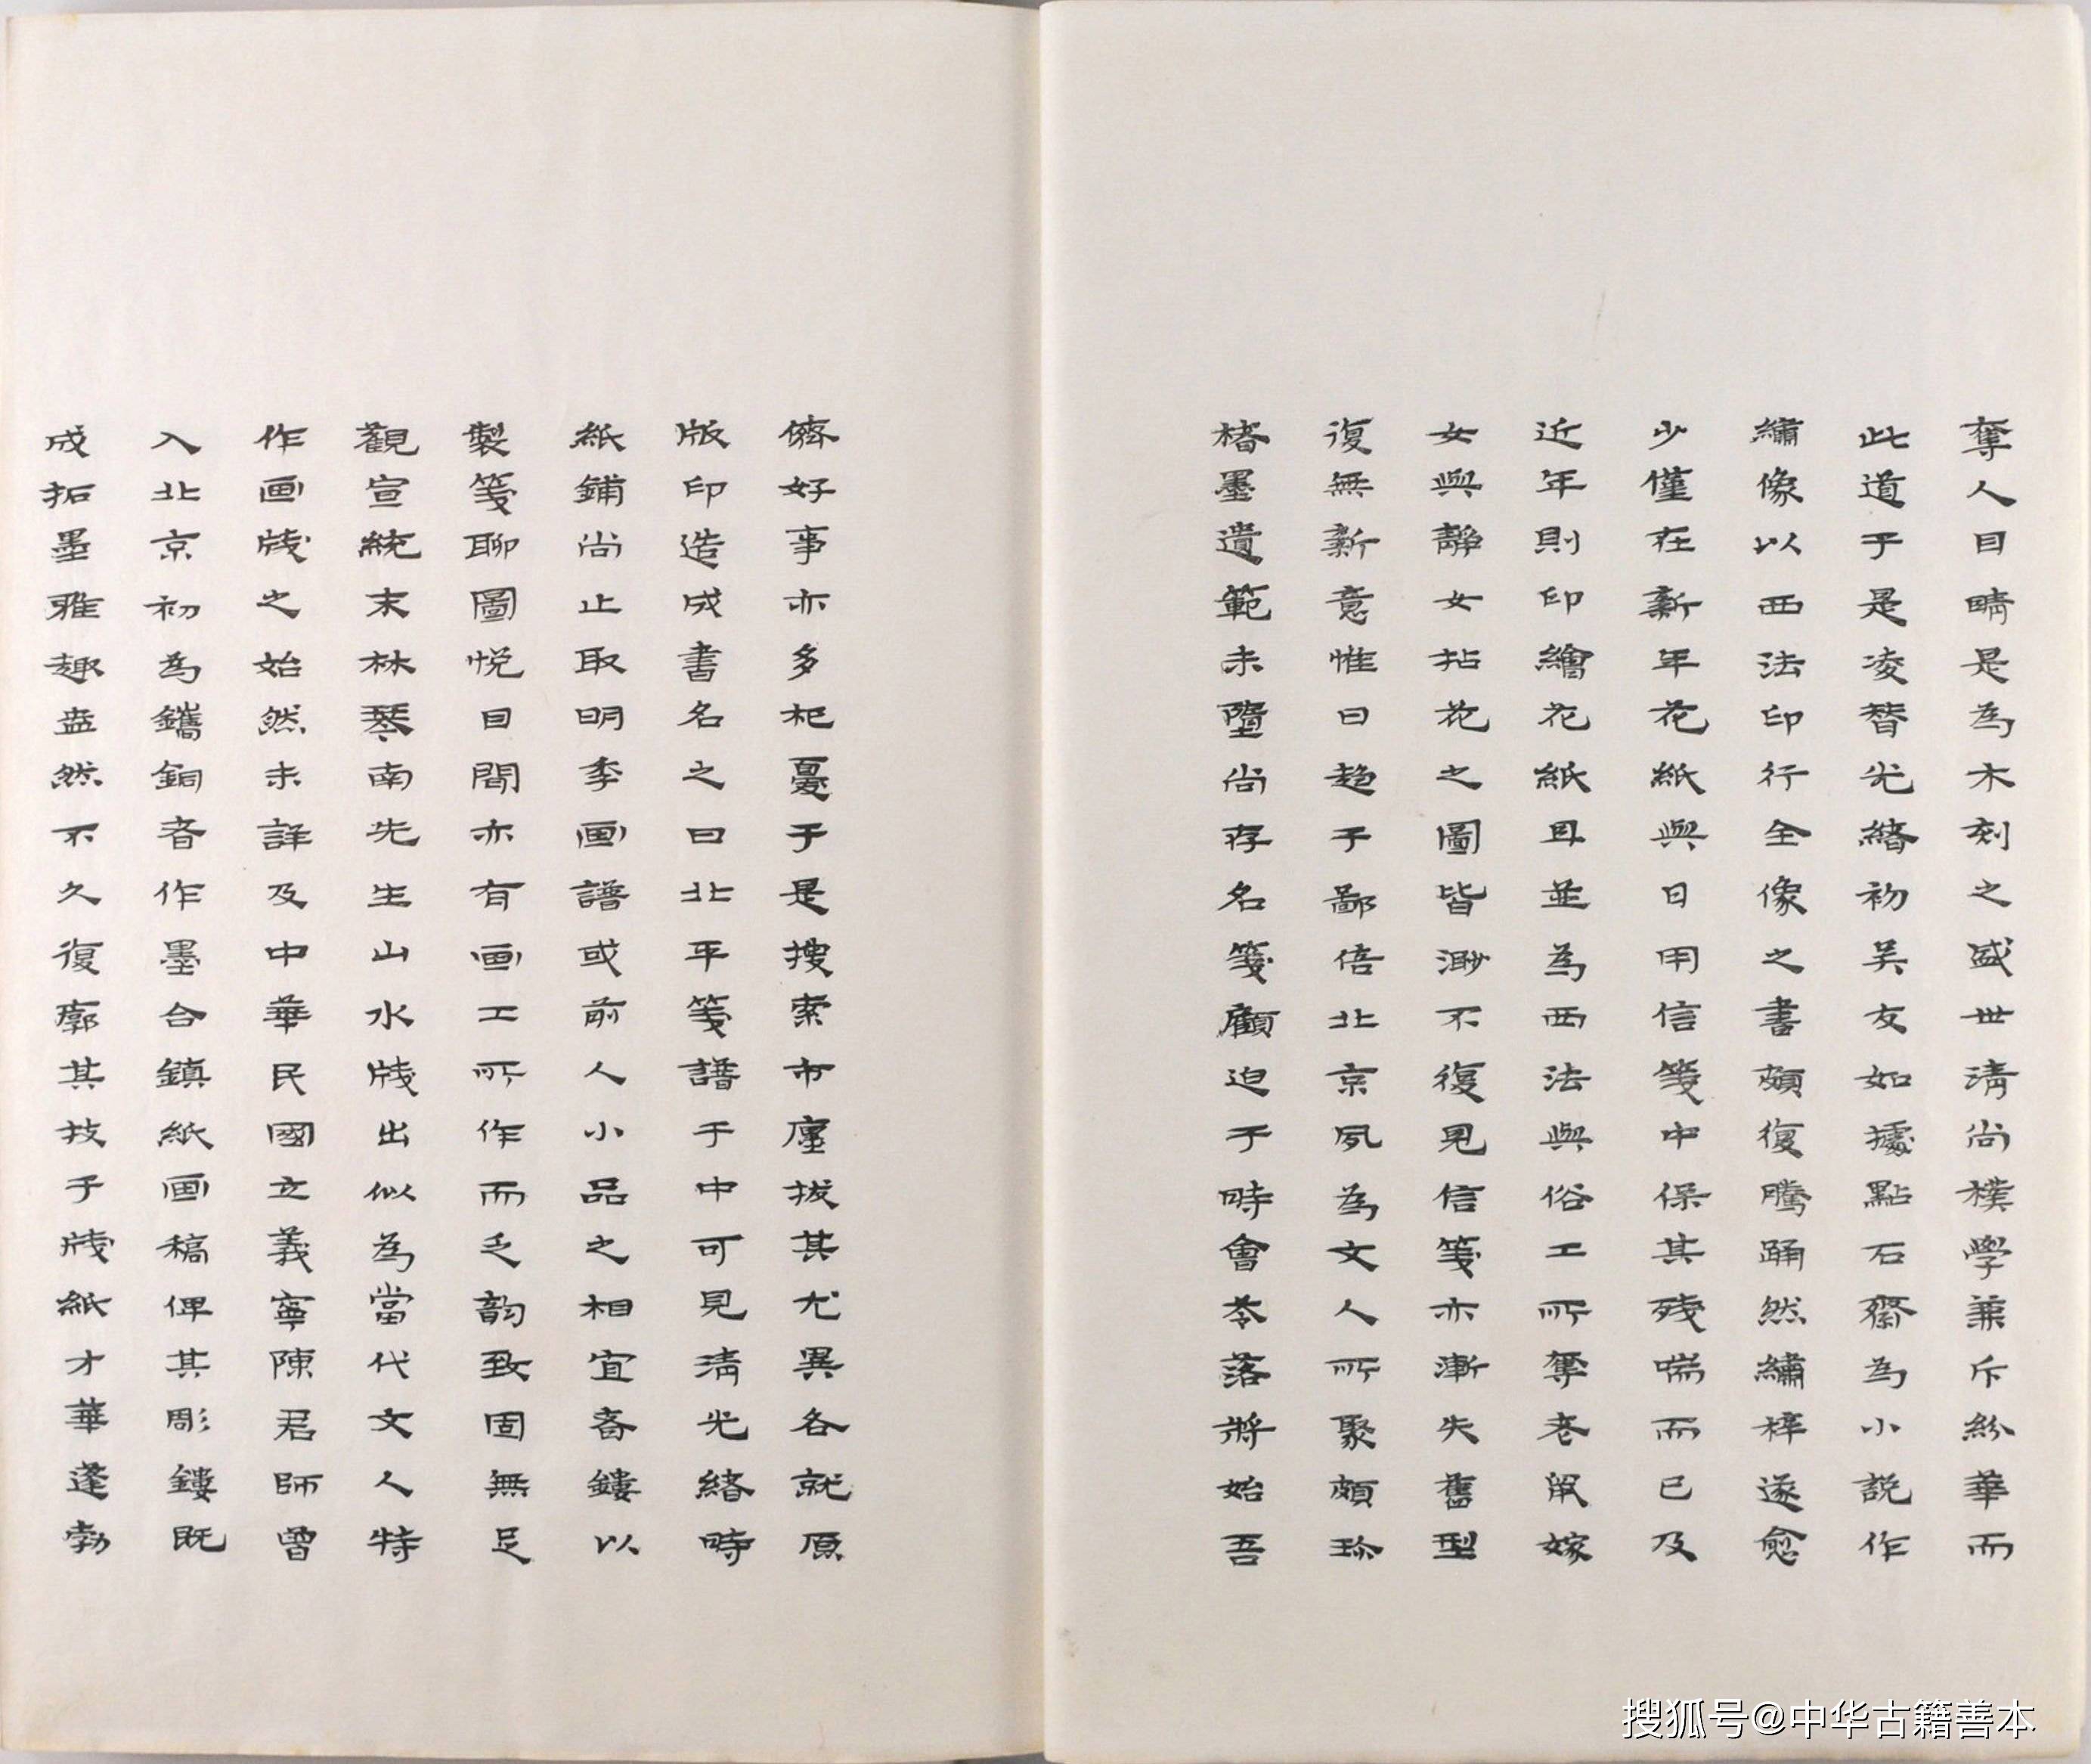 奪人目睛是為木刻之盛世淸尚樸學兼斥紛華而
此道于是凌替光緒初吴友如據點石齋為小說作
繡像以西法印行全像之書頗復騰踊然繡梓遂愈
少僅在新年花紙與日用信箋中保其殘喘而已及
近年則印繪花紙且並為西法與俗工所奪老鼠嫁
女與靜女拈花之圖皆渺不復見信箋亦漸失舊型
復無新意惟日趨于鄙倍北京夙為文人所聚頗珍
楮墨遺範未墮尚存名箋顧迫于時會苓落將始吾
儕好事亦多杞憂于是搜索市廛拔其尤異各就原
版印造成書名之曰北平箋譜于中可見淸光緒時
紙鋪尚止取明季画譜或前人小品之相宜者鏤以
製箋聊圖悅目間亦有画工所作而乏韵致固無足
觀宣統末林琴南先生山水牋出似為當代文人特
作画牋之始然未詳及中華民國立義寧陳君師曾
入北京初為鐫銅者作墨合鎮紙画稿俾其彫鏤既
成拓墨雅趣盎然不久復廓其技于牋紙才華蓬勃
搜狐号@中华古籍善本